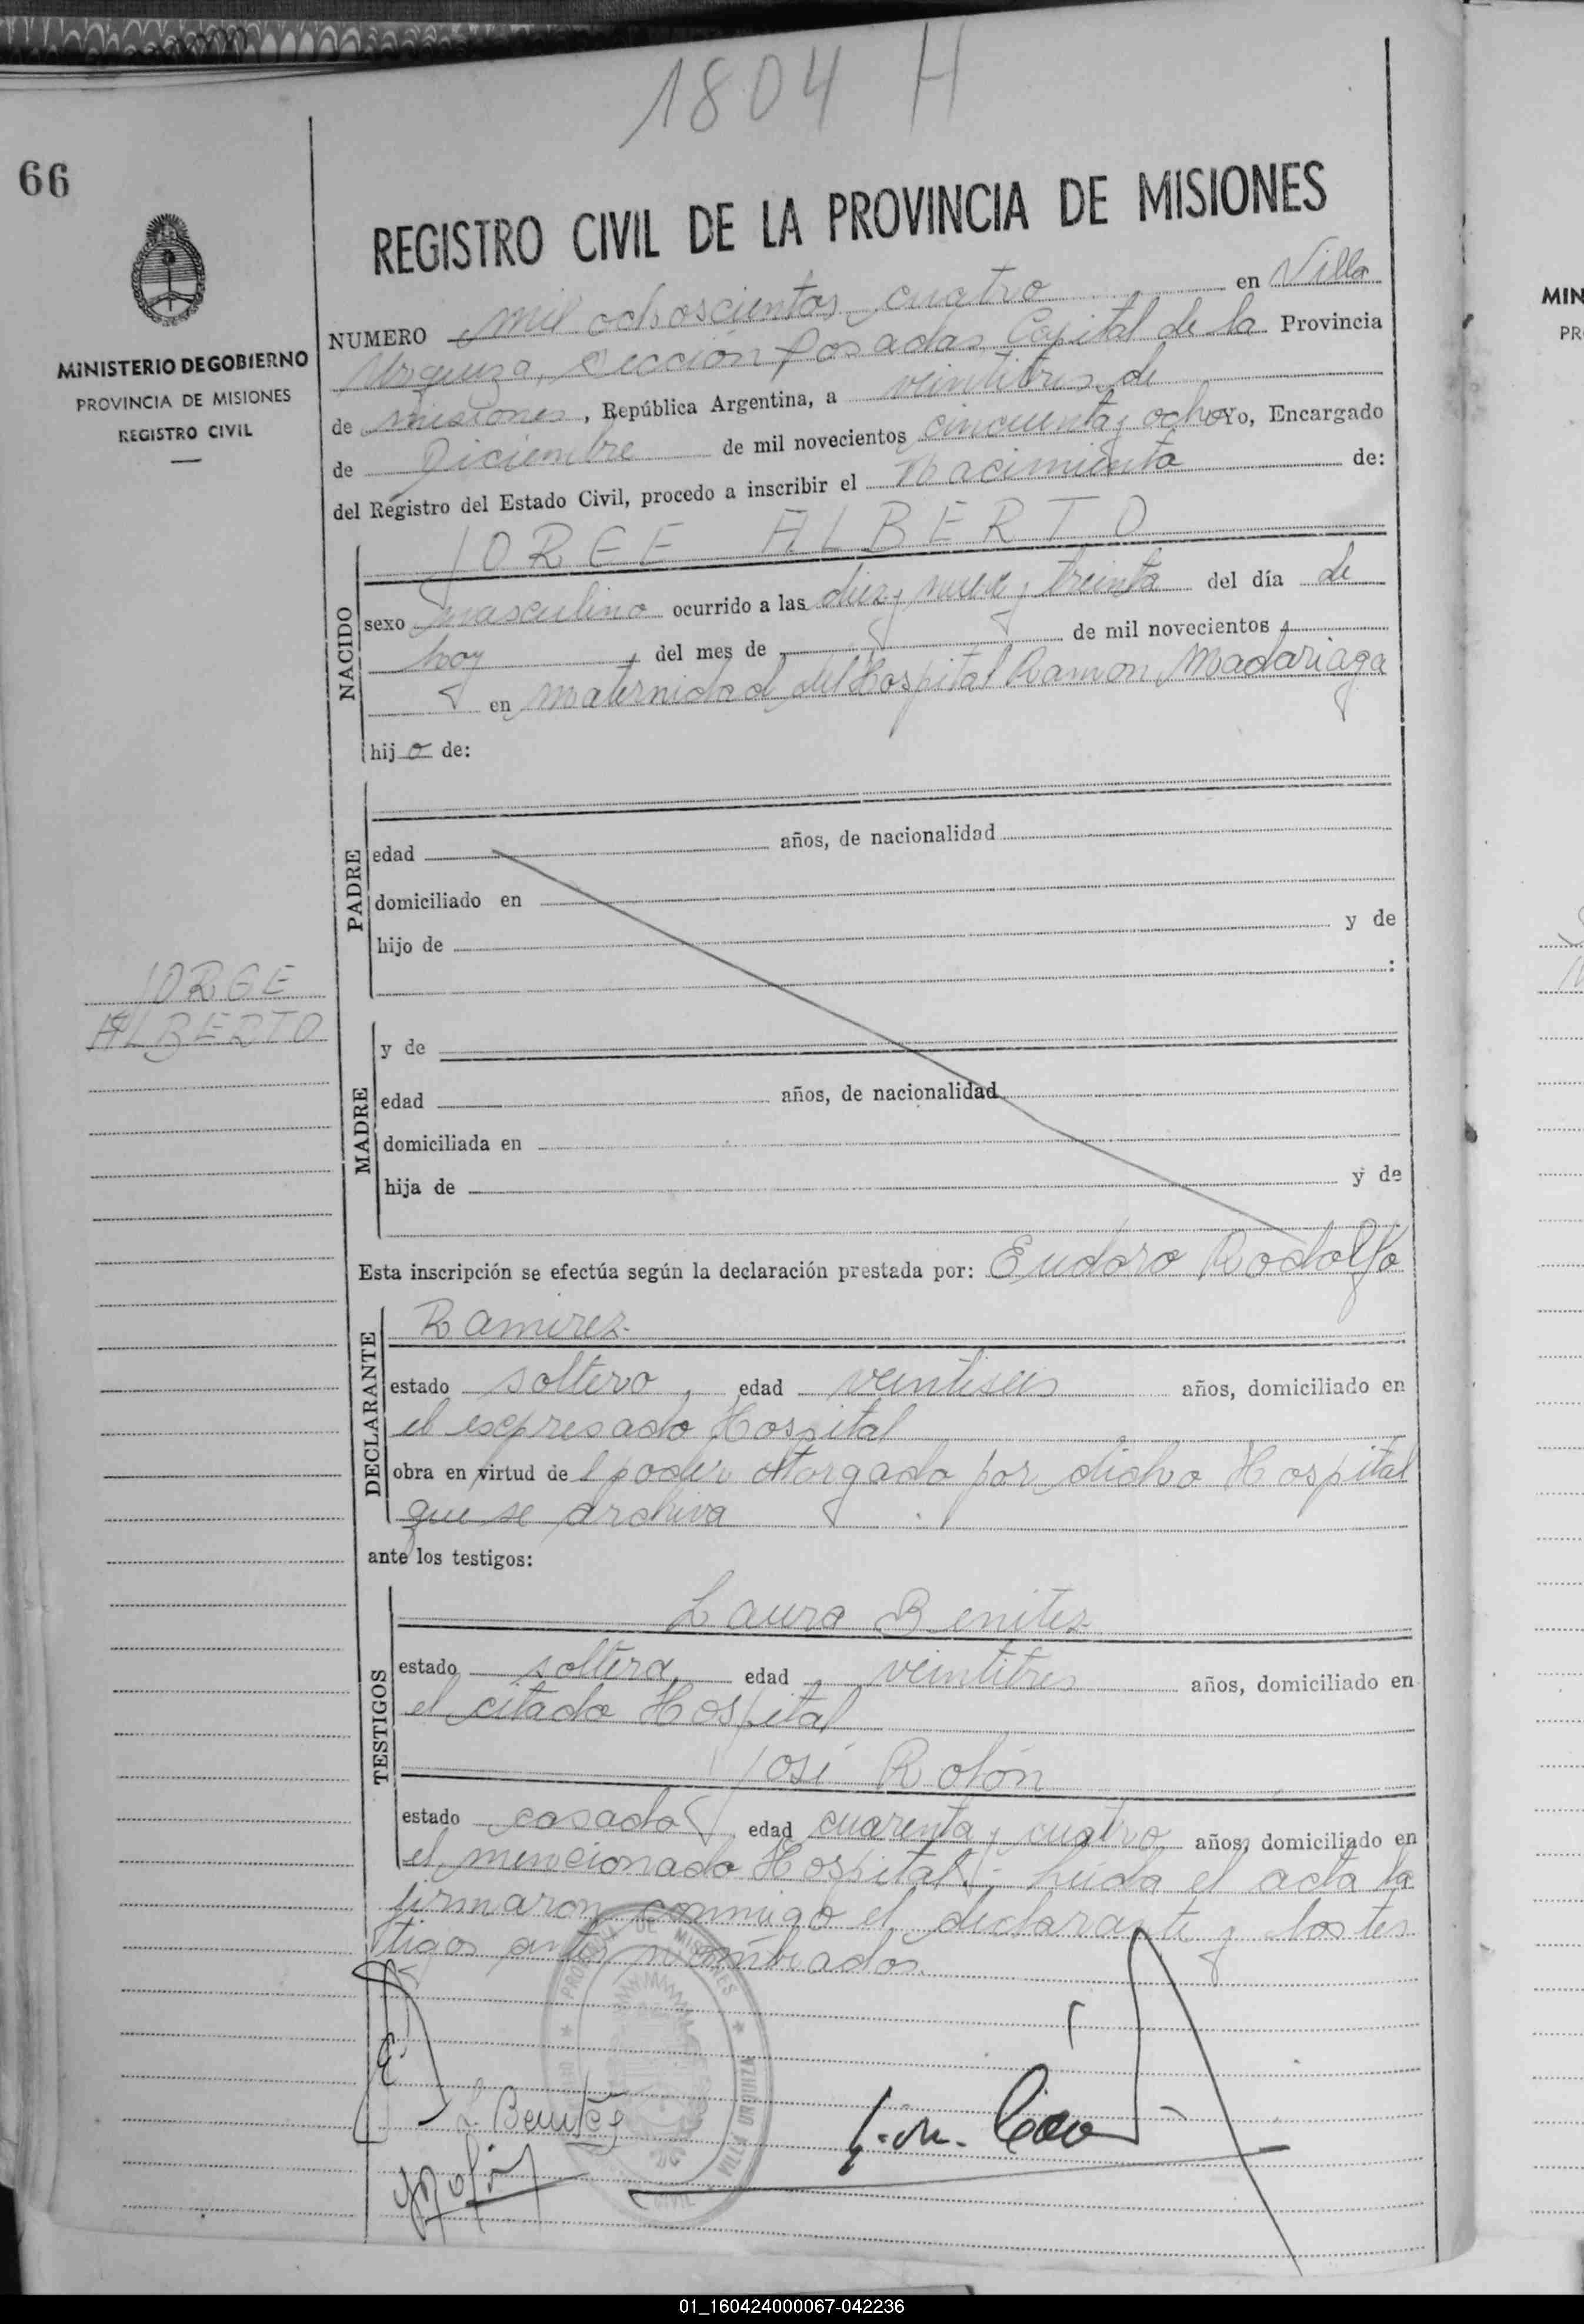 1804 H
66
REGISTRO CIVIL DE LA PROVINCIA DE MISIONES
MINISTERIO DE GOBIERNO
PROVINCIA DE MISIONES
REGISTRO CIVIL
NUMERO mil ochoscientos cuatro en Villa
Urquiza, Sección Posadas Capital de la Provincia
de Misiones, República Argentina, a veintitres de
de Diciembre de mil novecientos cincuenta y ocho Yo, Encargado
del Registro del Estado Civil, procedo a inscribir el Nacimiento de:
NACIDO
JORGE ALBERTO
sexo masculino ocurrido a las diez y nueve y treinta del día de
hoy, del mes de de mil novecientos
en maternidad del Hospital Ramon Madariaga
hijo de:
PADRE
edad años, de nacionalidad
domiciliado en
hijo de y de
:
JORGE
ALBERTO
MADRE
y de
edad años, de nacionalidad
domiciliada en
hija de y de
Esta inscripción se efectúa según la declaración prestada por: Eudoro Rodolfo
DECLARANTE
Ramirez.
estado soltero, edad veintiseis años, domiciliado en
el expresado Hospital
obra en virtud de l poder otorgado por dicho Hospital
que se archiva
ante los testigos:
TESTIGOS
Laura Benitez
estado soltera, edad veintitres años, domiciliado en
el citado Hospital
José Rolón
estado casado edad cuarenta y cuatro años, domiciliado en
el mencionado Hospital.- Leida el acta la
firmaron conmigo el declarante y los tes
tigos antes nombrados.
PROVINCIA DE MISIONES
VILLA URQUIZA
CIVIL
L. Benitez
JRolón
MIN
PR
01_160424000067-042236